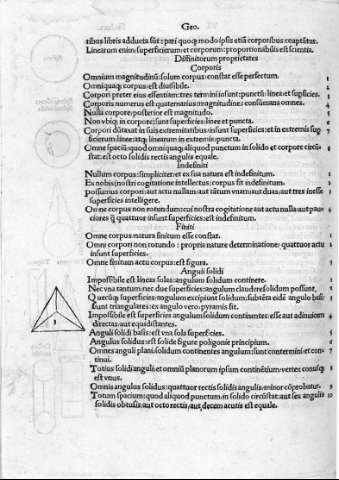 Geo.
tibus libris adducta sūt: pari quoq; modo ipsis etiā corporibus coaptātur.
Linearum enim: superficierum et corporum: proportionabilis est scientia.
Distinitorum proprietates
Corporis
Omnium magnitudinū: solum corpus: constat esse perfectum. 1
Omni quoq; corpus est diuisibile. 2
Corpori preter eius essentiam: tres termini insunt: puncta: linee: et supficies. 3
Corporis numerus est quaternarius magnitudinē: consumans omnes. 4
Nulla corpore posterior est magnitudo. 5
Non vbiq; in corpore: sunt superficies: linee et puncta. 6
Corpori dūtaxat in suis extremitatibus insunt superficies: et in extremis sup 7
ficierum linee: atq; linearum in extremis puncta.
Omne spaciū quod omniquaq; aliquod punctum in solido et corpore circū 8
stat: est octo solidis rectis angulis equale.
Indefiniti
Nullum corpus: simpliciter: et ex sua natura est indefinitum. 1
Ex nobis: nostri cogitatione intellectus: corpus fit indefinitum. 2
possumus corpori: aut actu nullam: aut tātum vnam: aut duas: aut tres inesse 3
superficies intelligere.
Omne corpus non rotundum: cui nostra cogitatione aut actu nulla aut pau 4
ciores q̄ quattuor insunt superficies: est indefinitum.
Finiti
Omne corpus: natura finitum esse constat. 1
Omni corpori non rotundo: propria nature determinatione: quattuor actu 2
insunt superficies.
Omne finitum actu corpus: est figura. 3
Anguli solidi
Impossibile est lineas solas: angulum solidum continere. 1
Nec vna tantum: nec due superficies: angulum claudere solidum possunt. 2
Q uecūq; superficies: angulum excipiunt solidum: subtēsa eidē angulo basis 3
sunt triangulares: ex angulo vero: pyramis fit.
Impossibile est superficies angulum solidum continentes: esse aut adinuicem 4
directas: aut equidistantes.
Anguli solidi basis: est vna sola superficies. 5
Angulus solidus: est solide figure poligonie principium. 6
Omnes anguli plani: solidum continentes angulum: sunt contermini et con- 7
tinui.
Totius solidi anguli: et omniū planorum ipsum continētium: vertex 8
est vnus.
Omnis angulus solidus: quattuor rectis solidis angulis: minor cōprobatur. 9
Totum spacium: quod aliquod punctum in solido circūstat: aut sex angulis 10
solidis obtusis: aut octo rectis: aut decem acutis est equale.
1